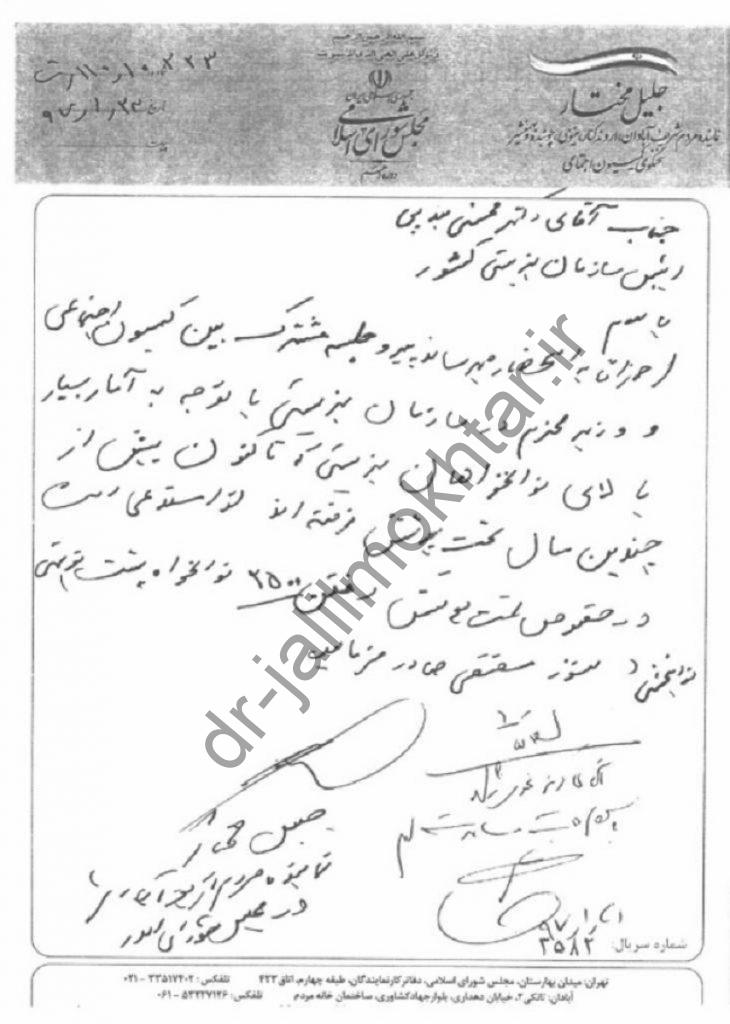 بسم الله الرحمن الرحیم
جمهوری اسلامی ایران
مجلس شورای اسلامی
جلیل مختار
نماینده مردم شریف آبادان، اروندکنار، مینوی، چوئبده و بهمنشیر
سخنگوی کمیسیون اجتماعی
جناب آقای دکتر محسنی بندپی
رئیس سازمان بهزیستی کشور
با سلام
احتراماً به استحضار میرساند پیرو جلسه مشترک بین کمیسیون اجتماعی
و وزیر محترم و سازمان بهزیستی با توجه به آمار بسیار
بالای مددخواهان بهزیستی که تاکنون بیش از
چندین سال تحت پوشش نرفته اند لذا مستدعی است
در خصوص تحت پوشش رفتن ۳۵۰۰ مددخواه پشت نوبتی
دستور مقتضی صادر فرمایید
جلیل مختار
نماینده مردم شریف آبادان
در مجلس شورای اسلامی
شماره سریال: ۳۵۸۲
تهران: میدان بهارستان، مجلس شورای اسلامی، دفاتر کار نمایندگان، طبقه چهارم، اتاق ۴۲۳ تلفکس: ۳۳۵۱۷۴۰۲ - ۰۲۱
آبادان: تانکی ۲، خیابان دهداری، بلوار جهاد کشاورزی، ساختمان خانه مردم تلفکس: ۵۳۲۲۷۱۲۶ - ۰۶۱
dr-jalilmokhtar.ir